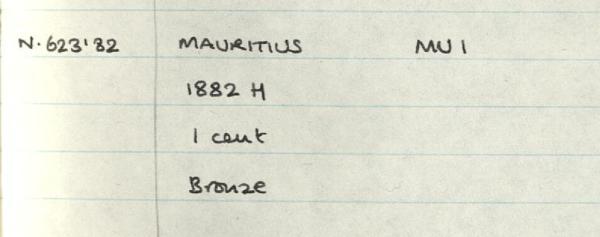 N.623'82 MAURITIUS MU1
1882 H
1 cent
Bronze